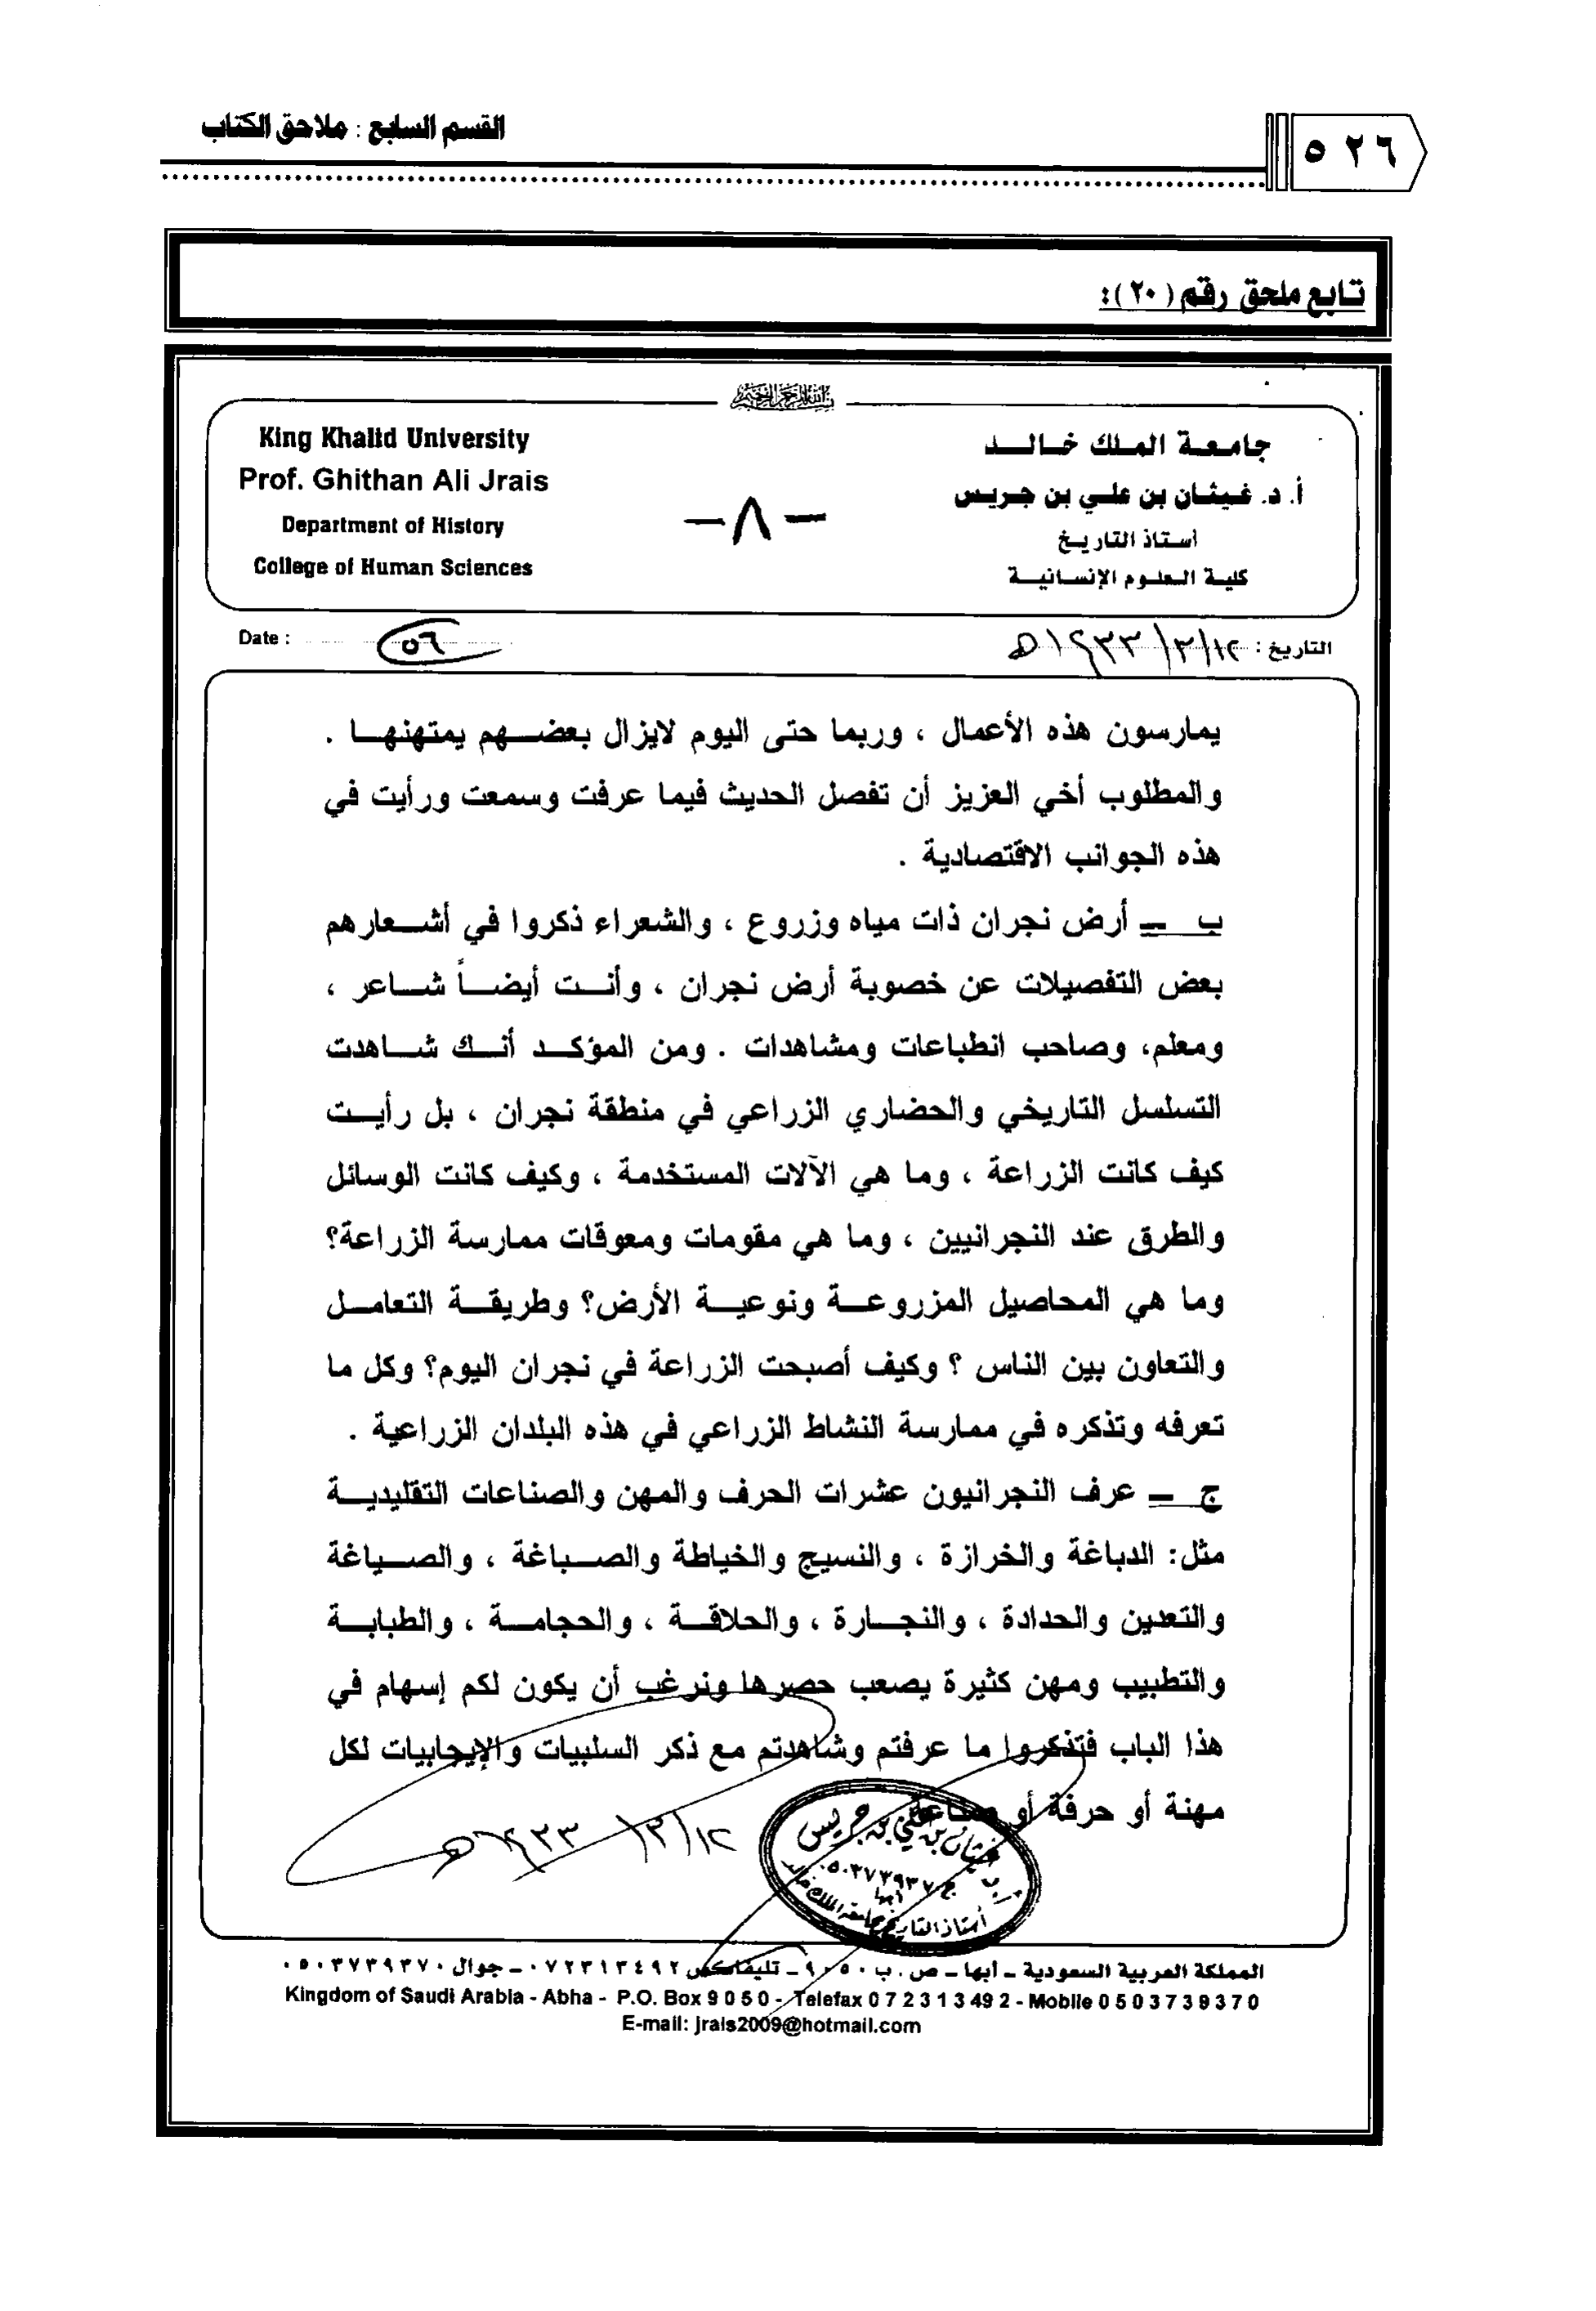 ٥٢٦
القسم السابع : ملاحق الكتاب
تابع ملحق رقم (٢٠):
بسم الله الرحمن الرحيم
جامعة الملك خالد
أ. د. غيثان بن علي بن جريس
أستاذ التاريخ
كلية العلوم الإنسانية
-٨-
King Khalid University
Prof. Ghithan Ali Jrais
Department of History
College of Human Sciences
التاريخ : ١٢/٣/١٤٣٣هـ
Date : ٥٦
يمارسون هذه الأعمال ، وربما حتى اليوم لايزال بعضهم يمتهنها .
والمطلوب أخي العزيز أن تفصل الحديث فيما عرفت وسمعت ورأيت في
هذه الجوانب الاقتصادية .
ب – أرض نجران ذات مياه وزروع ، والشعراء ذكروا في أشعارهم
بعض التفصيلات عن خصوبة أرض نجران ، وأنت أيضاً شاعر ،
ومعلم، وصاحب انطباعات ومشاهدات . ومن المؤكد أنك شاهدت
التسلسل التاريخي والحضاري الزراعي في منطقة نجران ، بل رأيت
كيف كانت الزراعة ، وما هي الآلات المستخدمة ، وكيف كانت الوسائل
والطرق عند النجرانيين ، وما هي مقومات ومعوقات ممارسة الزراعة؟
وما هي المحاصيل المزروعة ونوعية الأرض؟ وطريقة التعامل
والتعاون بين الناس ؟ وكيف أصبحت الزراعة في نجران اليوم؟ وكل ما
تعرفه وتذكره في ممارسة النشاط الزراعي في هذه البلدان الزراعية .
ج – عرف النجرانيون عشرات الحرف والمهن والصناعات التقليدية
مثل: الدباغة والخرازة ، والنسيج والخياطة والصباغة ، والصياغة
والتعدين والحدادة ، والنجارة ، والحلاقة ، والحجامة ، والطبابة
والتطبيب ومهن كثيرة يصعب حصرها ونرغب أن يكون لكم إسهام في
هذا الباب فتذكروا ما عرفتم وشاهدتم مع ذكر السلبيات والإيجابيات لكل
مهنة أو حرفة أو صناعة
١٢/٣/١٤٣٣هـ
غيثان بن علي بن جريس
ج/٠٥٠٣٧٣٩٣٧٠
أبها
أستاذ التاريخ بجامعة الملك خالد
المملكة العربية السعودية – أبها – ص . ب ٩٠٥٠ – تليفاكس ٠٧٢٣١٣٤٩٢ – جوال ٠٥٠٣٧٣٩٣٧٠
Kingdom of Saudi Arabia - Abha - P.O. Box 9 0 5 0 - Telefax 0 7 2 3 1 3 49 2 - Mobile 0 5 0 3 7 3 9 3 7 0
E-mail: jrais2009@hotmail.com